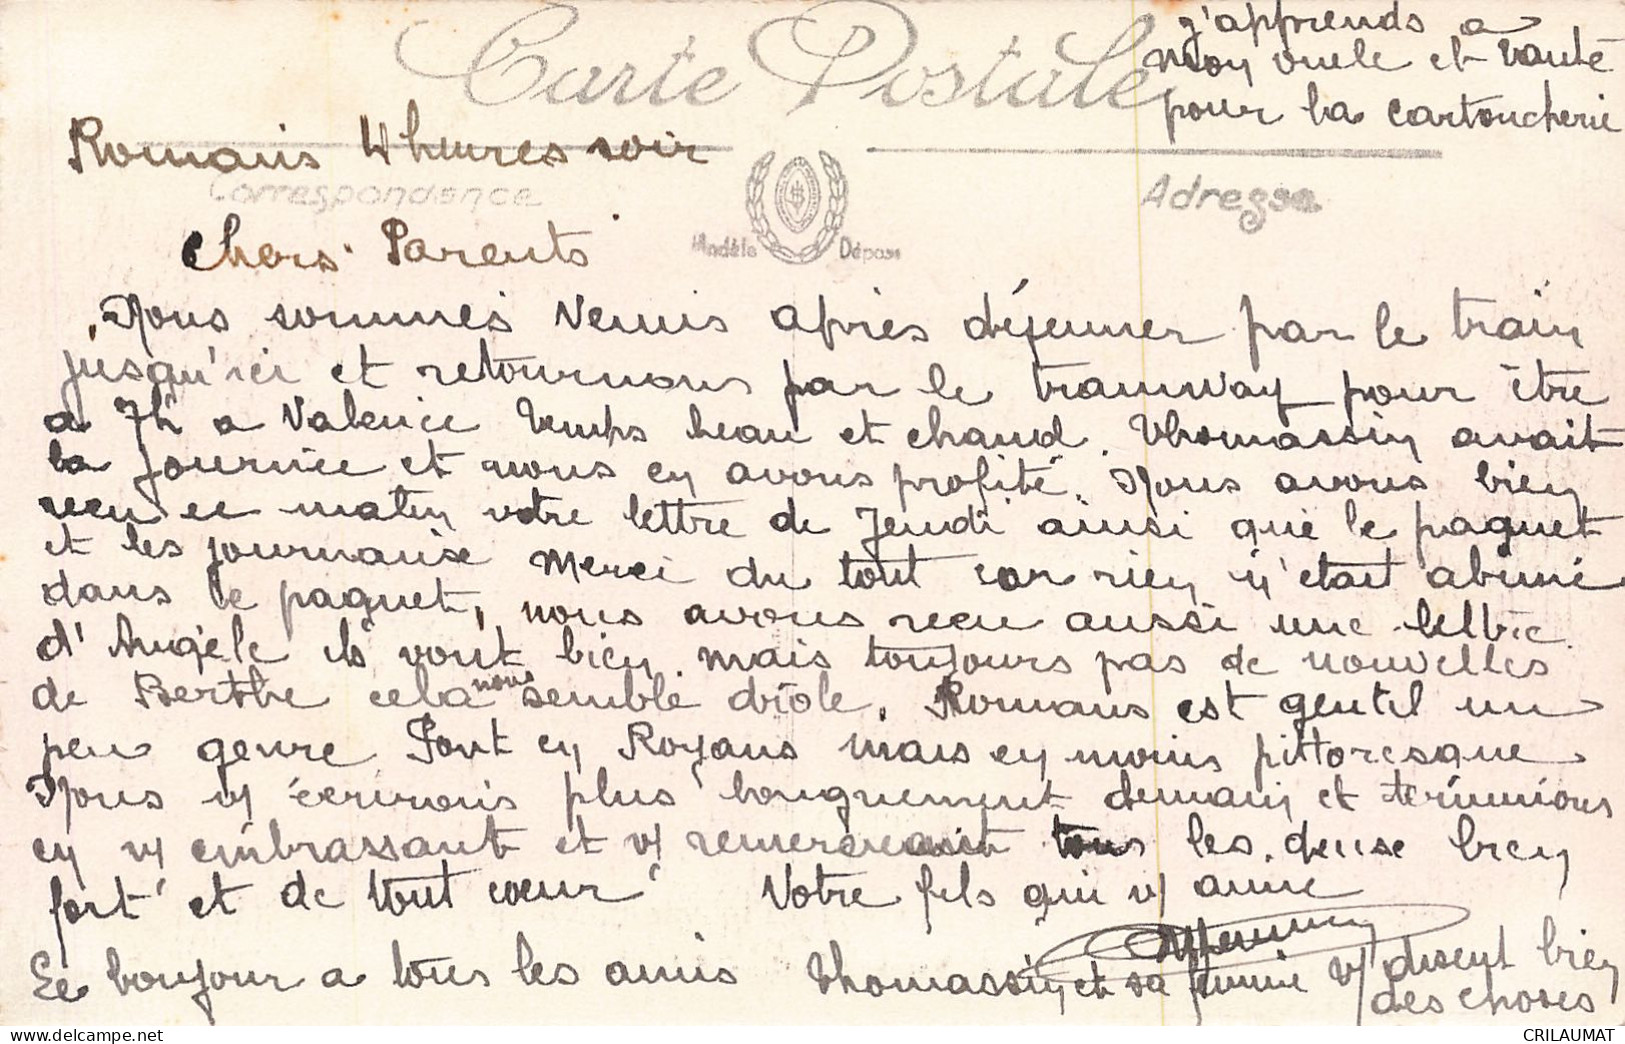 j'apprends a
Mon oncle et tante
pour la cartoucherie
Carte Postale
Romans 4 heures soir
Correspondance
Adresse
Modèle Déposé
Chers Parents
Nous sommes venus après déjeuner par le train
jusqu'ici et retournons par le tramway pour être
a 7h a Valence temps beau et chaud. Thomassin avait
la journée et nous en avons profité. Nous avons bien
reçu ce matin votre lettre de Jeudi ainsi que le paquet
et les journaux Merci du tout car rien n'etait abimé
dans le paquet, nous avons recu aussi une lettre
d'Angèle ils vont bien mais toujours pas de nouvelles
de Berthe cela nous semble drôle. Romans est gentil un
peu genre Pont en Royans mais en moins pittoresque
Nous v/ écrirons plus longuement demain et terminons
en v/ embrassant et v/ remerciant tous les deux bien
fort et de tout cœur Votre fils qui v/ aime
Le bonjour a tous les amis Thomassin et sa femme v/ disent bien
des choses
CRILAUMAT